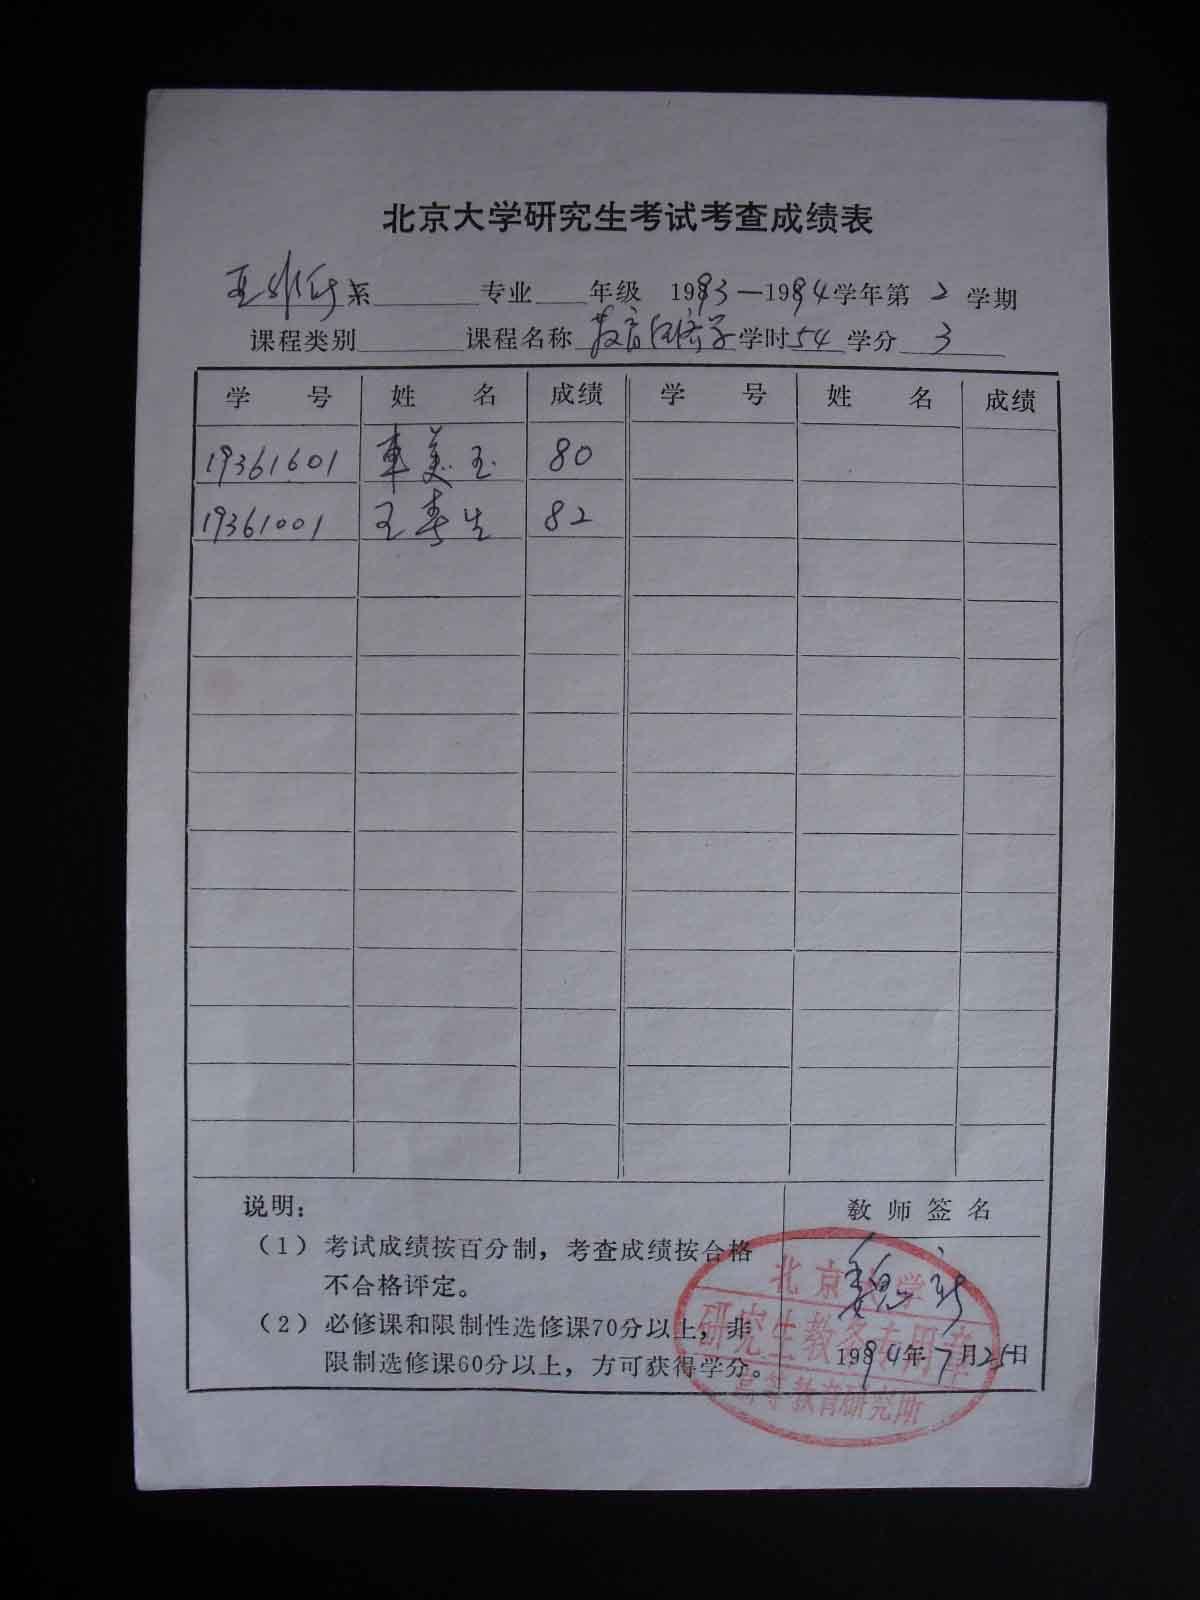 北京大学研究生考试考查成绩表
亚非所系 专业 年级 1993—1994学年第2学期
课程类别 课程名称 教育经济学 学时54学分3
学号 姓名 成绩 学号 姓名 成绩
19361601 车美玉 80
19361001 王春生 82
说明：
（1）考试成绩按百分制，考查成绩按合格
不合格评定。
（2）必修课和限制性选修课70分以上，非
限制选修课60分以上，方可获得学分。
教师签名
魏新
1994年7月25日
北京大学
研究生教务专用章
高等教育研究所